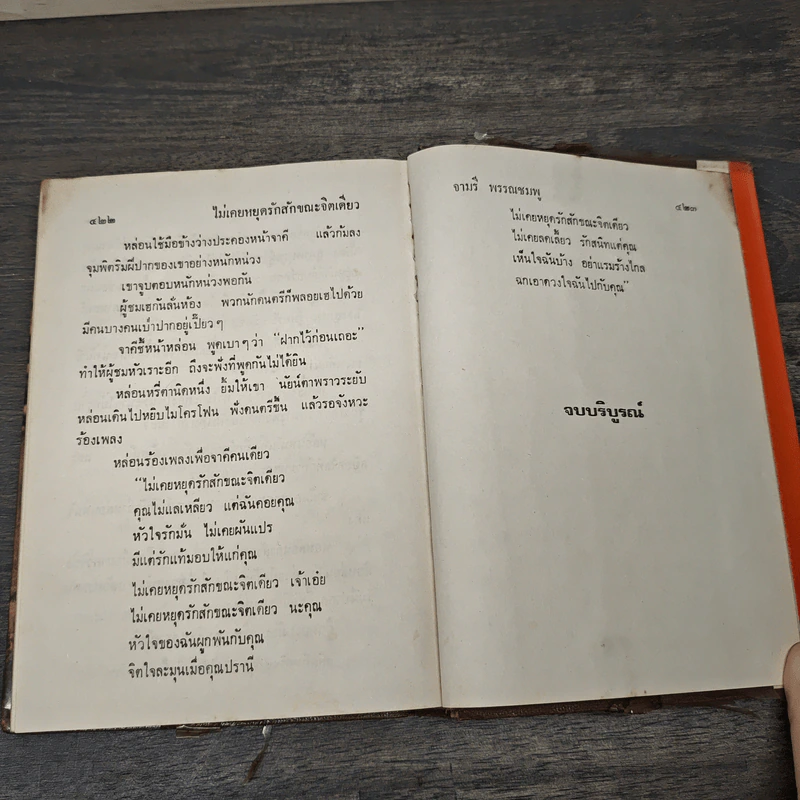 ๔๒๒ ไม่เคยหยุดรักสักขณะจิตเดียว
หล่อนใช้มือข้างว่างประคองหน้าจาคี แล้วก้มลง
จุมพิตริมฝีปากของเขาอย่างหนักหน่วง
เขาจูบตอบหนักหน่วงพอกัน
ผู้ชมเฮกันลั่นห้อง พวกนักดนตรีก็พลอยเฮไปด้วย
มีคนบางคนเป่าปากอยู่เปี๊ยวๆ
จาคีชี้หน้าหล่อน พูดเบาๆว่า “ฝากไว้ก่อนเถอะ”
ทำให้ผู้ชมหัวเราะอีก ถึงจะฟังที่พูดกันไม่ได้ยิน
หล่อนหรี่ตานิดหนึ่ง ยิ้มให้เขา นัยน์ตาพราวระยับ
หล่อนเดินไปหยิบไมโครโฟน ฟังดนตรีขึ้น แล้วรอจังหวะ
ร้องเพลง
หล่อนร้องเพลงเพื่อจาคีคนเดียว
“ไม่เคยหยุดรักสักขณะจิตเดียว
คุณไม่แลเหลียว แต่ฉันคอยคุณ
หัวใจรักมั่น ไม่เคยผันแปร
มีแต่รักแท้มอบให้แก่คุณ
ไม่เคยหยุดรักสักขณะจิตเดียว เจ้าเอ๋ย
ไม่เคยหยุดรักสักขณะจิตเดียว นะคุณ
หัวใจของฉันผูกพันกับคุณ
จิตใจละมุนเมื่อคุณปรานี
จามรี พรรณชมพู ๔๒๓
ไม่เคยหยุดรักสักขณะจิตเดียว
ไม่เคยลดเลี้ยว รักสนิทแด่คุณ
เห็นใจฉันบ้าง อย่าแรมร้างไกล
ฉกเอาดวงใจฉันไปกับคุณ”
จบบริบูรณ์